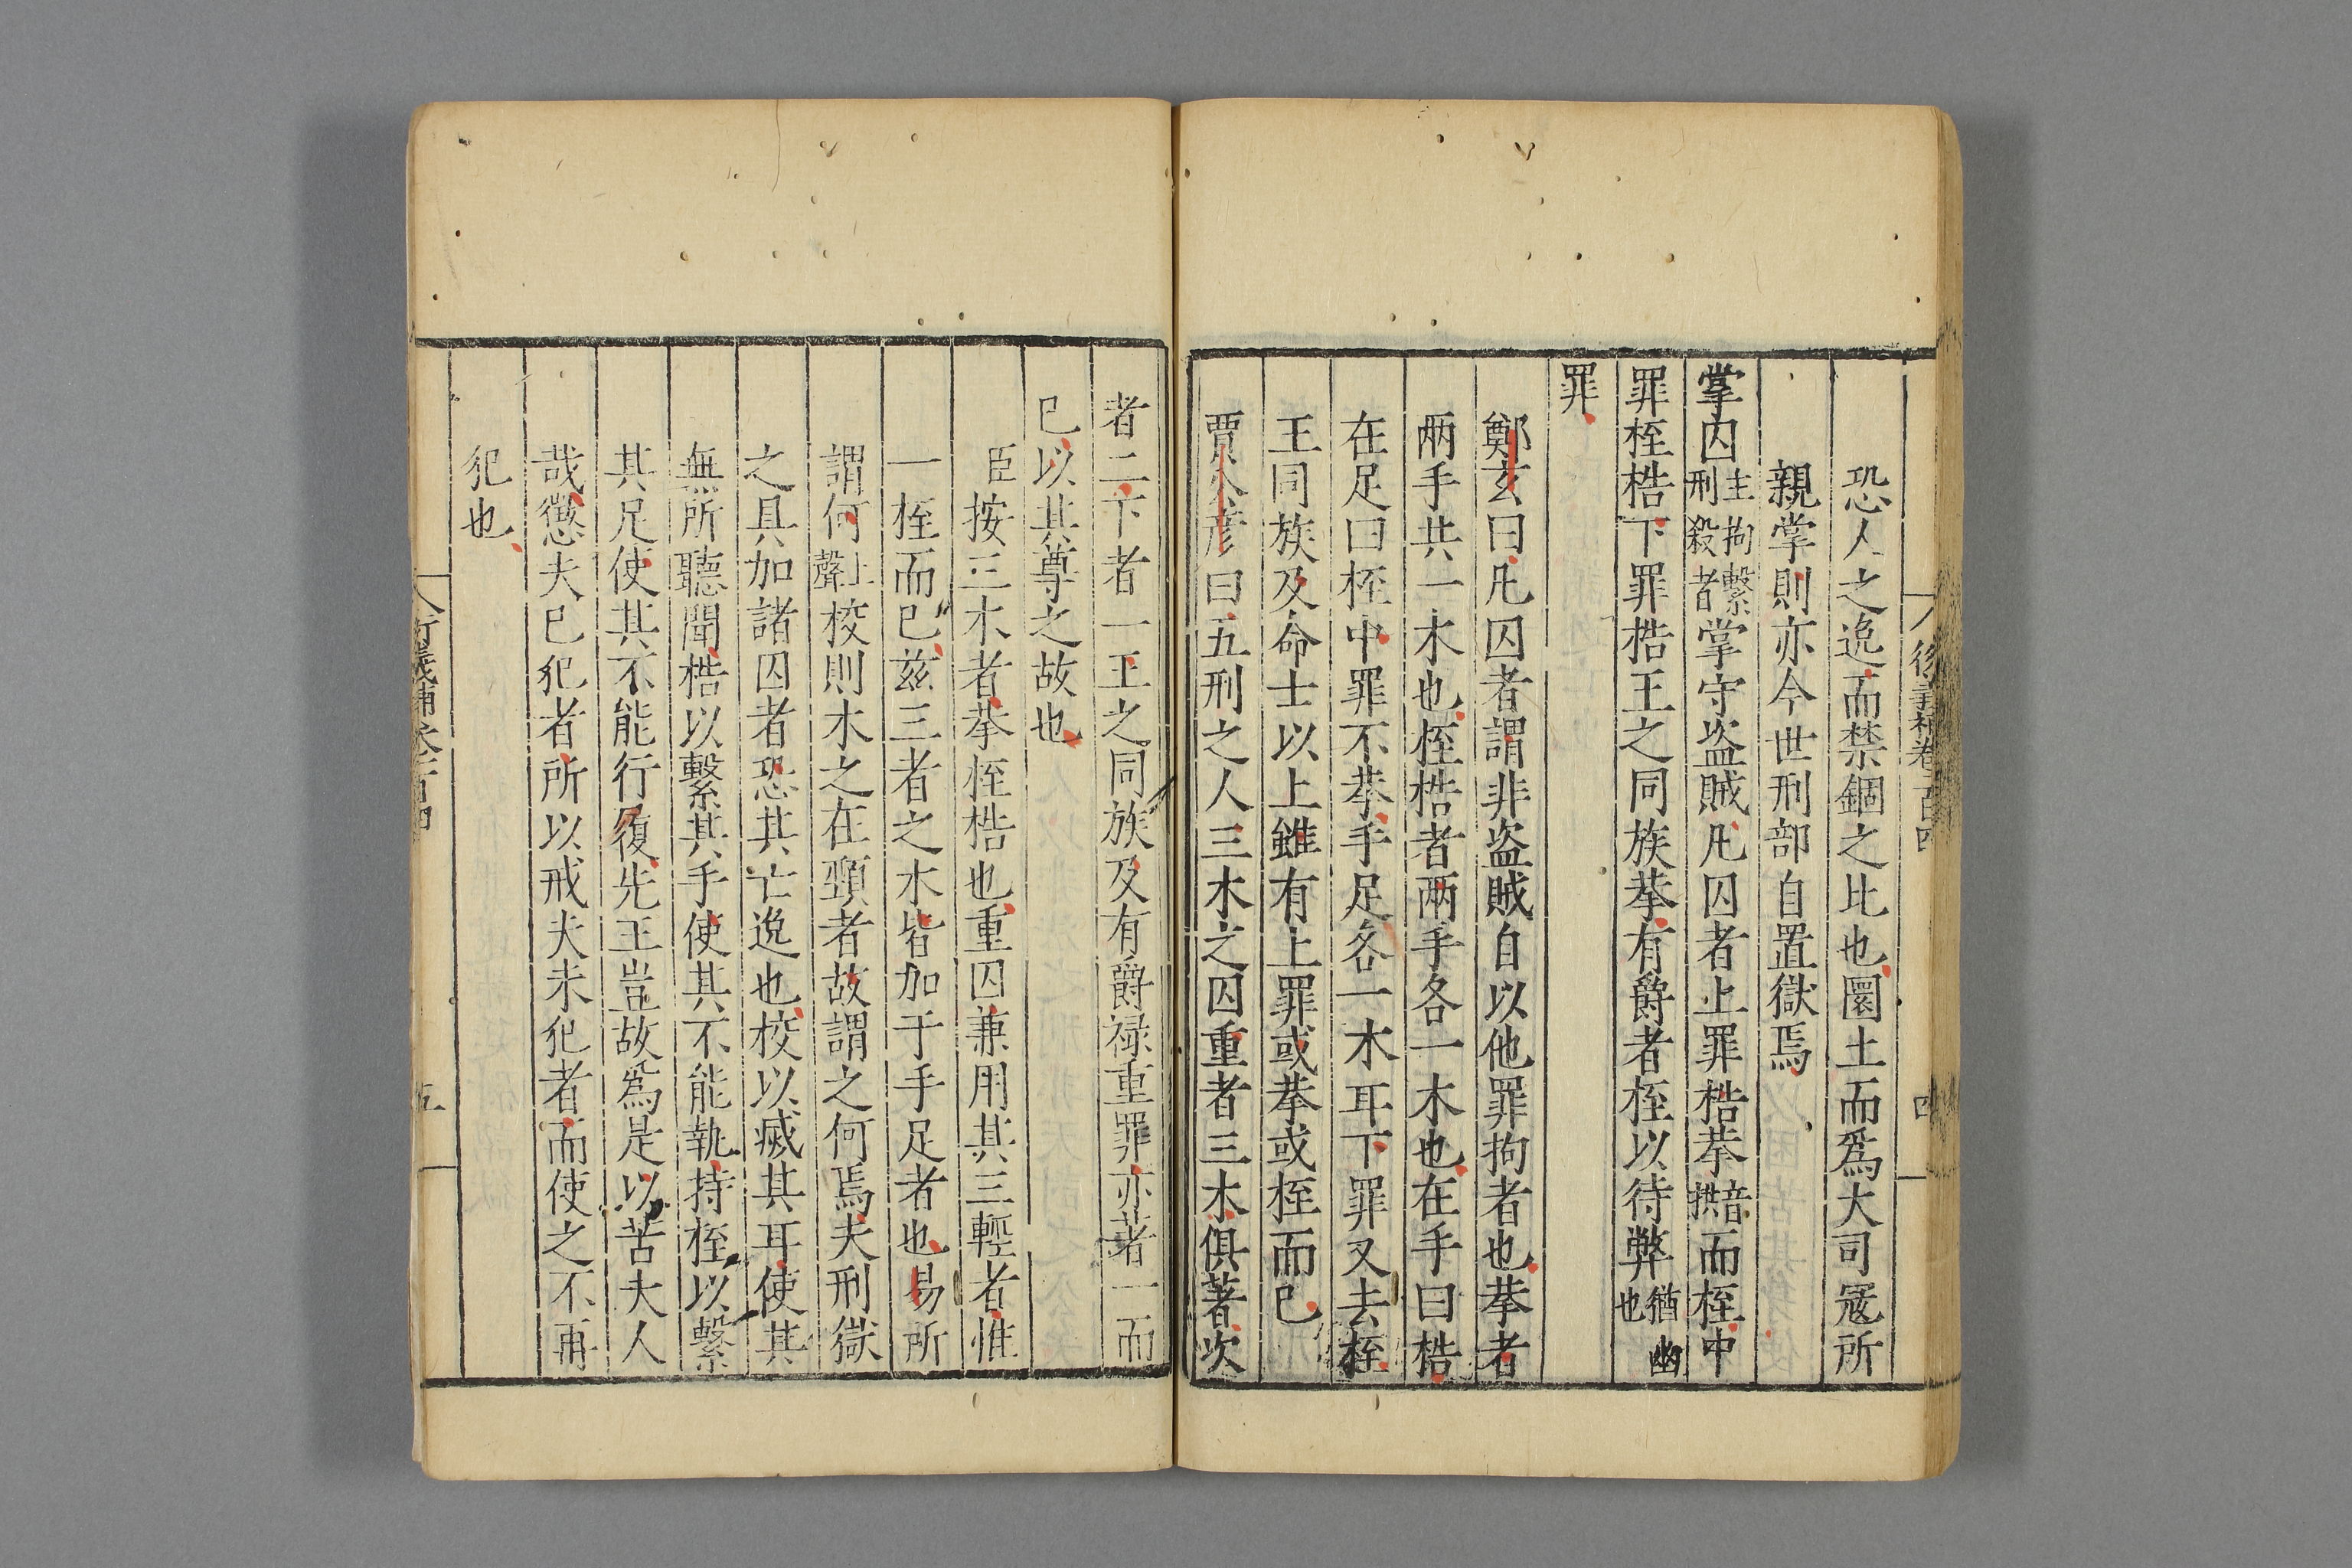 恐人之逸而禁錮之比也圜土而爲大司寇所
親掌則亦今世刑部自置獄焉
掌囚主拘繫刑殺者掌守盗賊凡囚者上罪梏拲音拱而桎中
罪桎梏下罪梏王之同族拲有爵者桎以待弊猶也幽
罪
鄭玄曰凡囚者謂非盗賊自以他罪拘者也拲者
兩手共一木也桎梏者兩手各一木也在手曰梏
在足曰桎中罪不拲手足各一木耳下罪又去桎
王同族及命士以上雖有上罪或拲或桎而已
賈公彦曰五刑之人三木之囚重者三木俱著次
者二下者一王之同族及有爵禄重罪亦著一而
已以其尊之故也
臣按三木者拲桎梏也重囚兼用其三輕者惟
一桎而已兹三者之木皆加于手足者也易所
謂何上聲校則木之在頸者故謂之何焉夫刑獄
之具加諸囚者恐其亡逸也校以㓕其耳使其
無所聽聞梏以繫其手使其不能執持桎以繫
其足使其不能行復先王豈故爲是以苦夫人
哉懲夫已犯者所以戒夫未犯者而使之不再
犯也
五